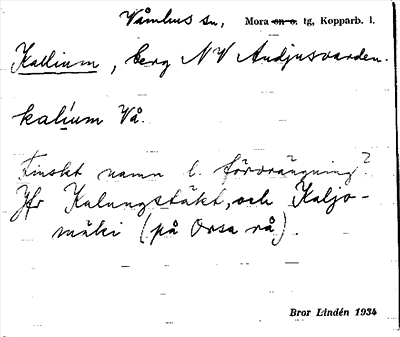 Våmhus sn, Mora sn o. tg, Kopparb. l.
Kallium, berg NV Andjusvarden.
kalíum Vå.
Finskt namn l. förvrängning?
Jfr Kalungstäkt, och Kaljo-
mäki (på Orsa rå).
Bror Lindén 1934